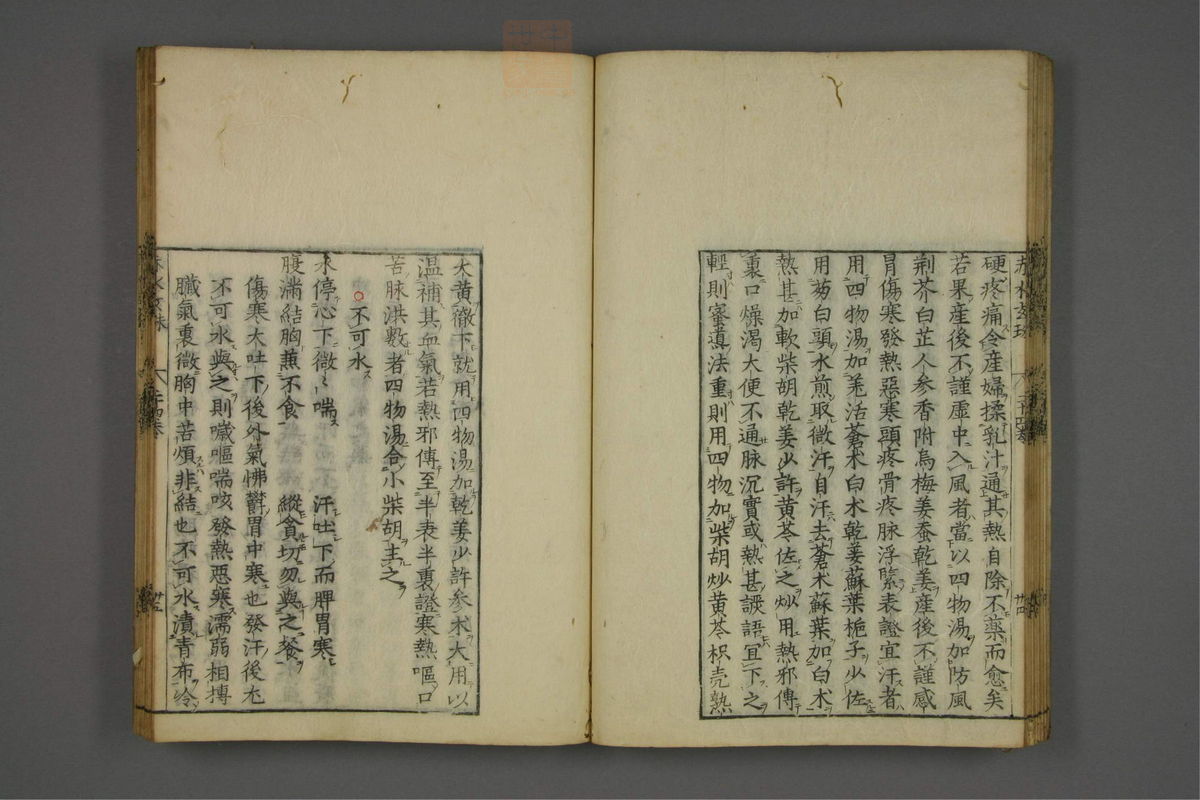 硬疼痛令産婦揉乳汁通其熱自除不藥而愈矣
若果産後不謹虚中入風者當以四物湯加防風
荆芥白芷人参香附烏梅姜蚕乾姜産後不謹感
胃傷寒發熱惡寒頭疼骨疼脉浮緊表證宜汗者
用四物湯加羌活蒼术白术乾姜蘇葉梔子少佐
用葱白頭水煎取微汗自汗去蒼术蘇葉加白术
熱甚加軟柴胡乾姜少許黄芩佐之炒用熱邪傳
裏口燥渇大便不通脉沉實或熱甚譫語宜下之
輕則蜜導法重則用四物加柴胡炒黄芩枳壳熟
大黄微下就用四物湯加乾姜少許参术大用以
温補其血氣若熱邪傳至半表半裏證寒熱嘔口
苦脉洪數者四物湯合小柴胡主之
不可水
水停心下微〻喘 汗吐下而脾胃寒
腹滿結胸蕉不食 縱貪切勿與之餐
傷寒大吐下後外氣怫鬱胃中寒也發汗後尤
不可水與之則噦嘔喘咳發熱惡寒濡弱相摶
臓氣裏微胸中苦煩非結也不可水漬青布冷